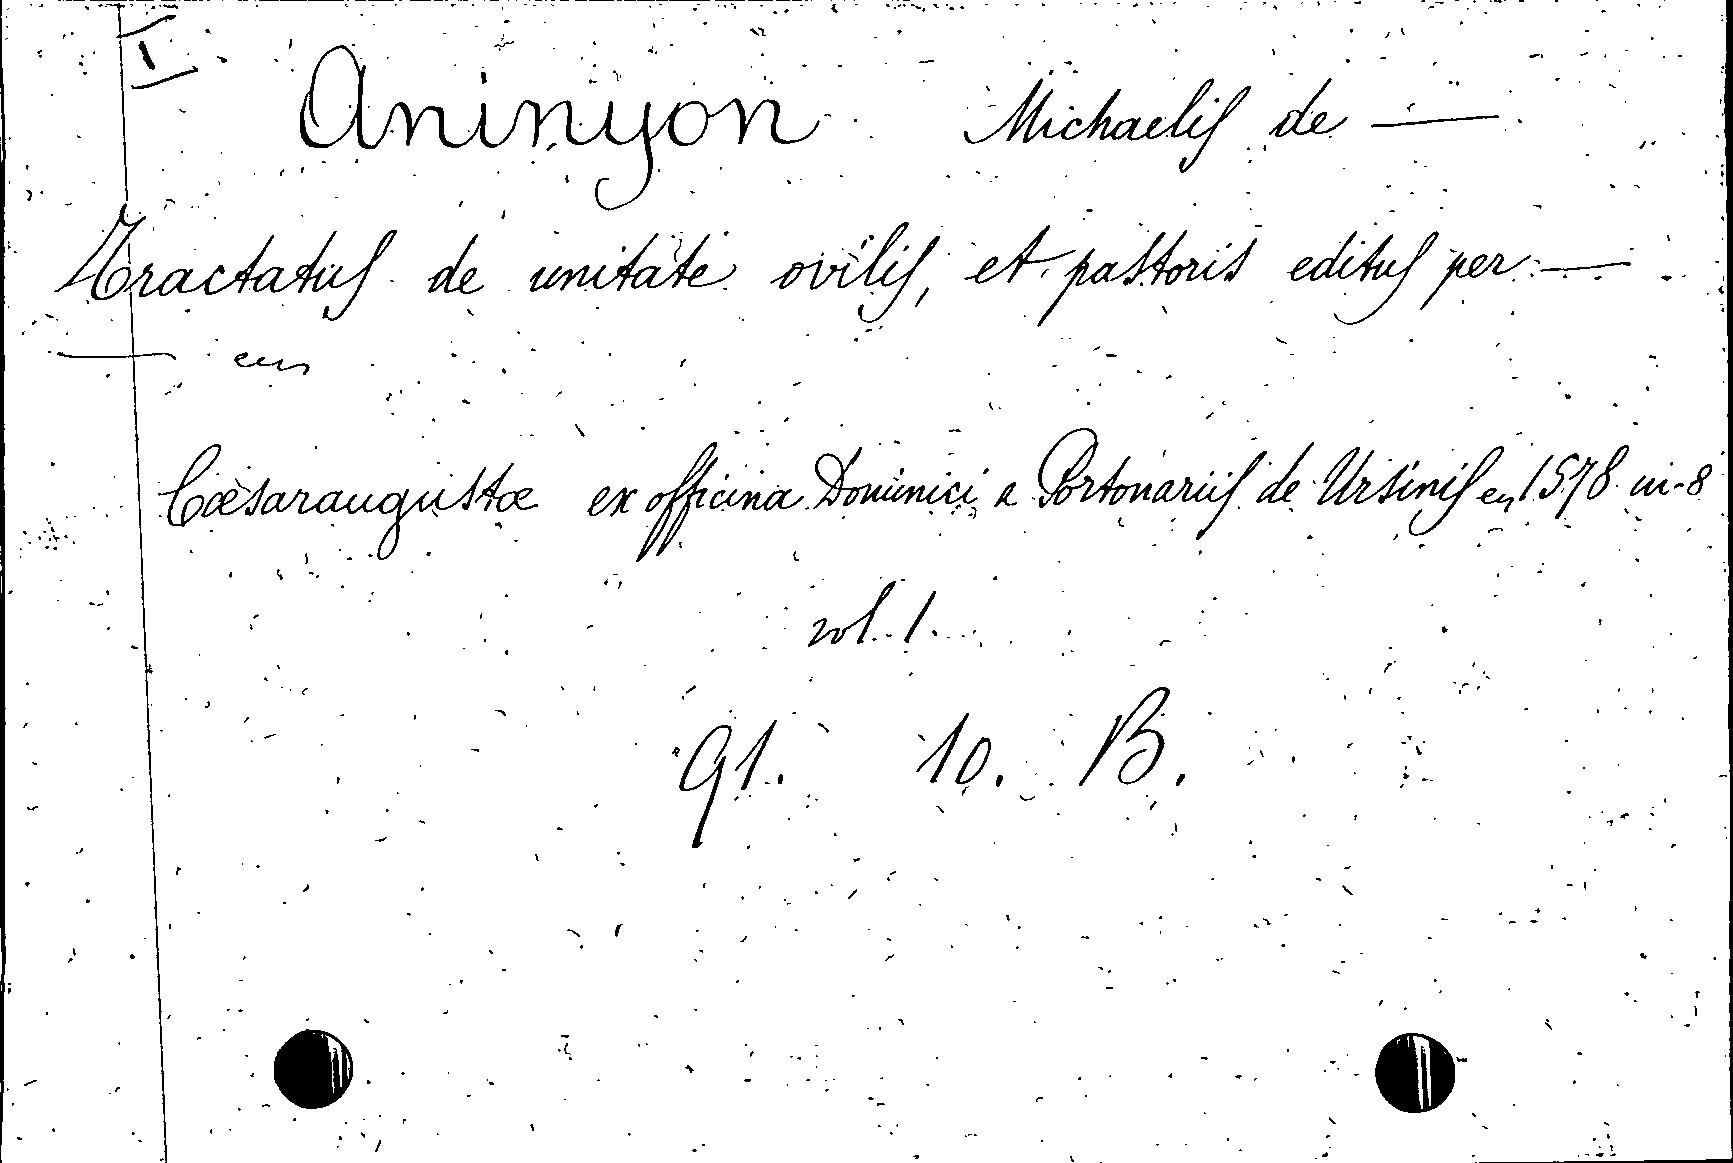 I
Aninyon Michaelis de —
Tractatus de unitate ovilis, et pastoris editus per —
—
Cæsaraugustæ ex officina Dominici a Portonariis de Ursinis en 1578 in-8
vol. 1.
91. 10. B.